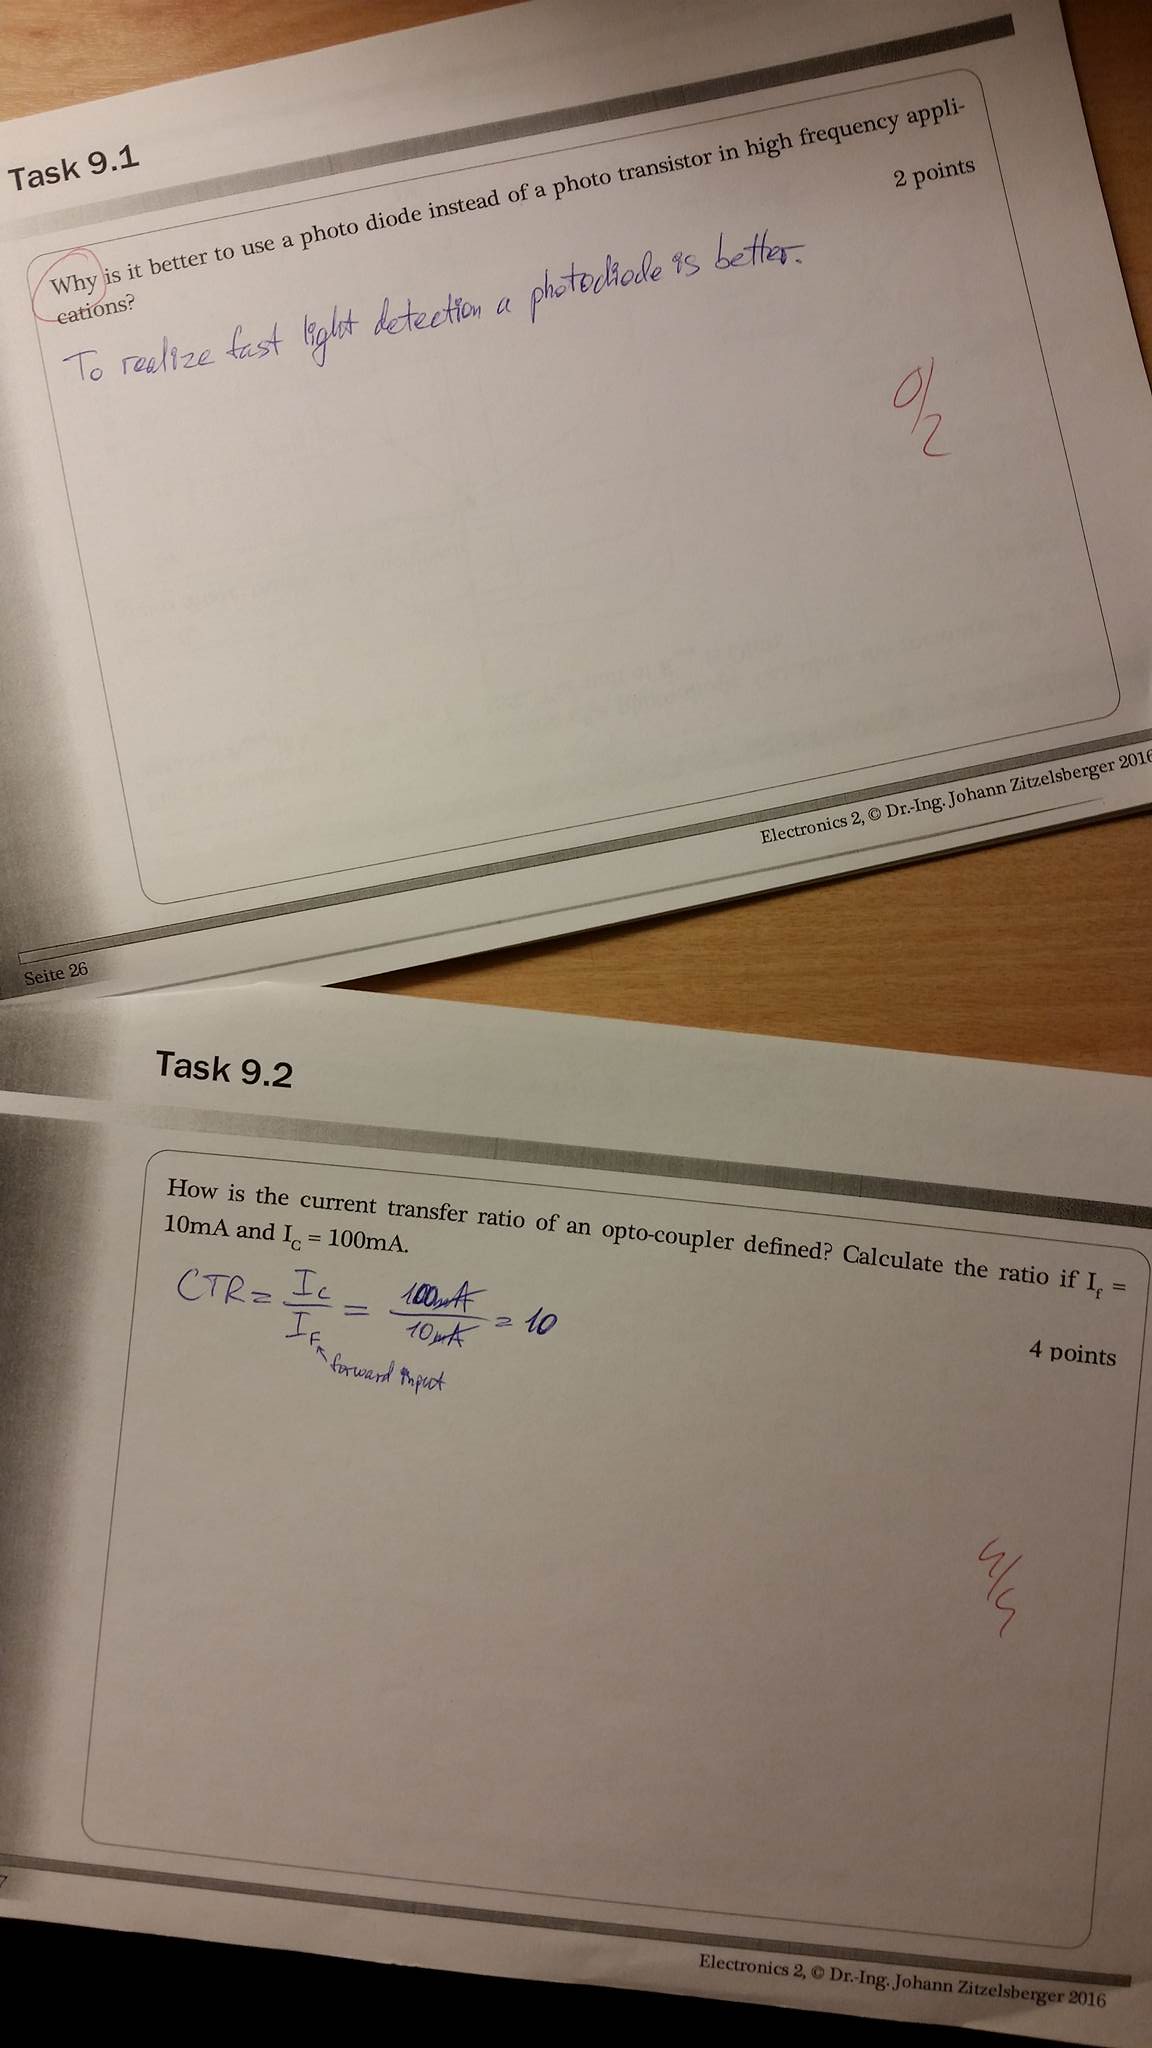 Task 9.1
Why is it better to use a photo diode instead of a photo transistor in high frequency appli-
cations?
2 points
To realize fast light detection a photodiode is better.
0/2
Electronics 2, © Dr.-Ing. Johann Zitzelsberger 2016
Seite 26
Task 9.2
How is the current transfer ratio of an opto-coupler defined? Calculate the ratio if I_f =
10mA and I_C = 100mA.
4 points
CTR = I_C / I_F = 100mA / 10mA = 10
forward input
4/4
7
Electronics 2, © Dr.-Ing. Johann Zitzelsberger 2016